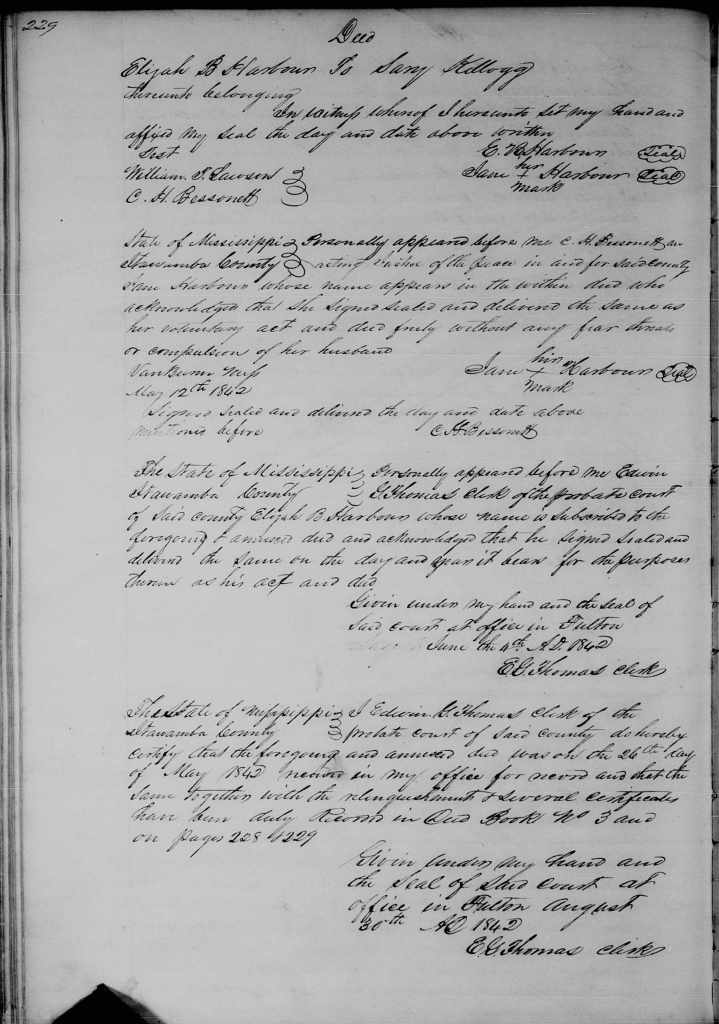 229
Deed
Elijah B Harbour To Sany Kellogg
thereunto belonging
In witness whereof I hereunto set my hand and
affixed my seal the day and date above written
Test
E. B. Harbour Seal
William T. Lawson
Jane her + mark Harbour Seal
C. H. Bessonett
State of Mississippi Personally appeared before me C. H. Bessonett an
Itawamba County acting Justice of the peace in and for said County
Jane Harbour whose name appears in the within deed who
acknowledged that she signed sealed and delivered the same as
her voluntary act and deed freely without any fear threats
or compulsion of her husband
VanBuren Miss
Jane her + mark Harbour Seal
May 12th 1842
Signed sealed and delivered the day and date above
mentioned before C H Bessonett
The State of Mississippi Personally appeared before me Edwin
Itawamba County G Thomas Clerk of the probate court
of said county Elijah B Harbour whose name is subscribed to the
foregoing & annexed deed and acknowledged that he signed sealed and
delivered the same on the day and year it bears for the purposes
therein as his act and deed
Givin under my hand and the seal of
said court at office in Fulton
June the 4th A.D. 1842
E G Thomas Clerk
The State of Mississippi I Edwin G Thomas Clerk of the
Itawamba County probate court of said county do hereby
certify that the foregoing and annexed deed was on the 26th day
of May 1842 received in my office for record and that the
same together with the relinquishment & several certificates
have been duly Record in Deed Book No 3 and
on pages 228 & 229
Givin under my hand and
the seal of said court at
office in Fulton August
30th AD 1842
E G Thomas Clerk